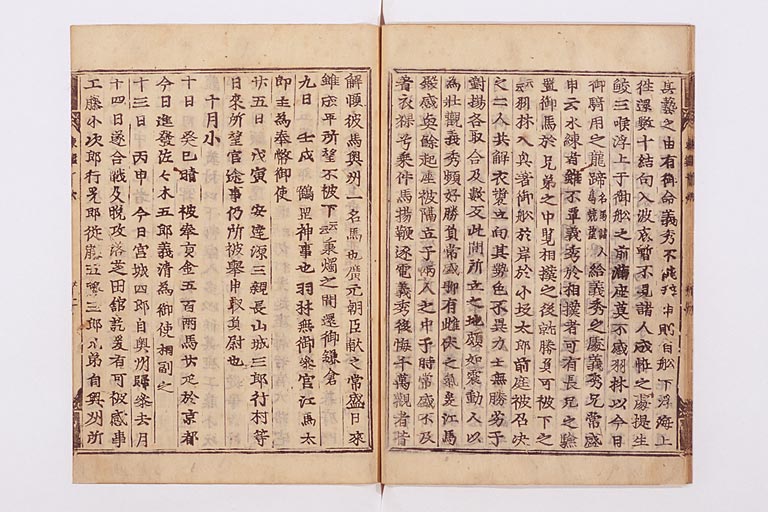 其藝之由有御命義秀不能辞申則自船下浮海上
往還數十結句入波底暫不見諸人成恠之處提生
鮫三喉浮上于御船之前滿座莫不感羽林以今日
御騎用之龍蹄給義秀之處義秀兄常盛
申云水練者雖不覃義秀於相撲者可有長兄之驗
置御馬於兄弟之中覽相撲之後就勝負可被下之
云云羽林入興着御船於岸於小坂太郎前庭被召決
之二人共解衣裝立向其勢色不異力士無勝劣于
對揚各取合及數反此間所立之地頗如震動人以
為壯觀義秀頗好勝負常盛聊有雌伏之氣矣江馬
殿感與餘起座被隔立于兩人之中于時常盛不及
着衣裸乎乗件馬揚鞭逐電義秀後悔千萬觀者皆
解頤彼馬奥州一名馬也廣元朝臣獻之常盛日來
雖成平所望不被下云云秉燭之間還御鎌倉
九日 壬戌 鶴岳神事也羽林無御參宮江馬太
郎主為奉幣御使
廿五日 戊寅 安達源三親長山城三郎行村等
日來所望官途事仍所被舉申靱負尉也
十月小
十日 癸巳 晴 被奉京金五百兩馬廿疋於京都
今日進發佐々木五郎義清為御使相副之
十三日 丙申 今日宮城四郎自奥州歸參去月
十四日遂合戰及晩攻落芝田舘訖爰有可被感事
工藤小次郎行光郎從藤五藤三郎兄弟自奥州所